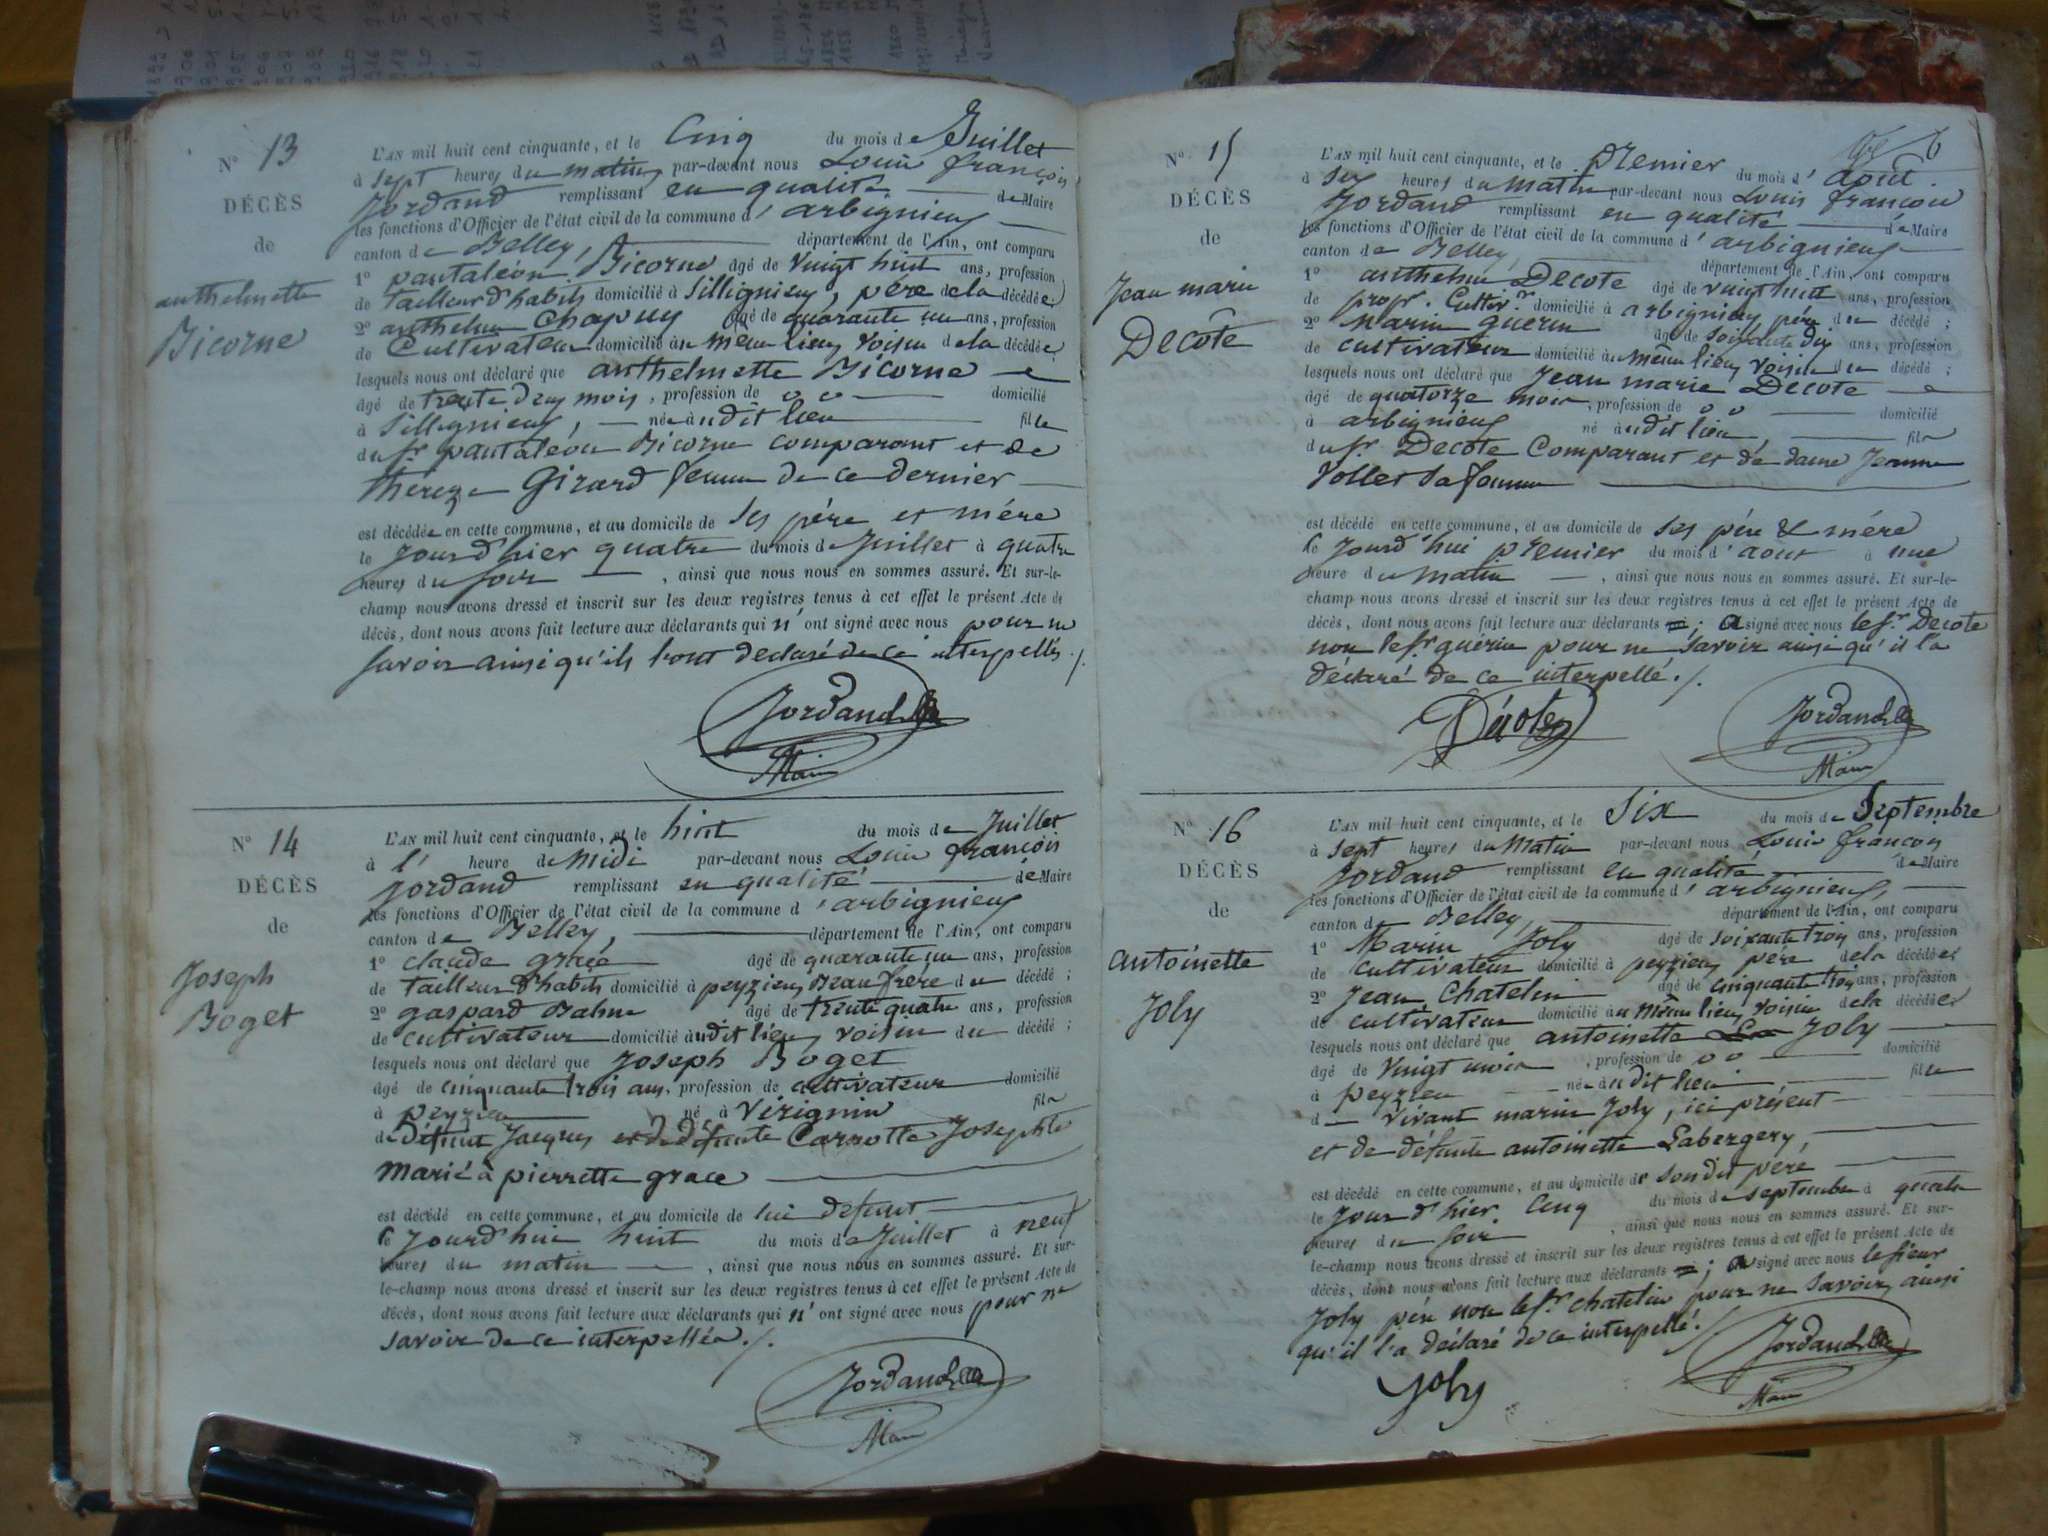 N° 13
DÉCÈS
de
anthelmette
Bicorne
L'AN mil huit cent cinquante, et le Cinq du mois de Juillet
à sept heures du matin par-devant nous Louis françois
Jordand remplissant en qualité de Maire
les fonctions d'Officier de l'état civil de la commune d'arbignieu
canton de Belley, département de l'Ain, ont comparu
1° pantaléon Bicorne âgé de vingt huit ans, profession
de tailleur d'habits domicilié à Sillignieu, père de la décédée
2° anthelme Chapuy âgé de quarante un ans, profession
de Cultivateur domicilié au même lieu, voisin de la décédée
lesquels nous ont déclaré que anthelmette Bicorne
âgé de trente deux mois, profession de o o domicilié
à Sillignieu, née audit lieu fille
du sr pantaléon Bicorne comparant et de
thereze Girard femme de ce dernier
est décédée en cette commune, et au domicile de ses père et mère
le jourd'hier quatre du mois de Juillet à quatre
heures du soir, ainsi que nous nous en sommes assuré. Et sur-le-
champ nous avons dressé et inscrit sur les deux registres tenus à cet effet le présent Acte de
décès, dont nous avons fait lecture aux déclarants qui n'ont signé avec nous pour ne
savoir ainsi qu'ils l'ont déclaré de ce interpellés ./.
Jordand
Maire
N° 14
DÉCÈS
de
Joseph
Boget
L'AN mil huit cent cinquante, et le huit du mois de Juillet
à l' heure de midi par-devant nous Louis françois
Jordand remplissant en qualité de Maire
les fonctions d'Officier de l'état civil de la commune d'arbignieu
canton de Belley, département de l'Ain, ont comparu
1° claude grace âgé de quarante un ans, profession
de tailleur d'habits domicilié à peyzieu, Beaufrère du décédé ;
2° gaspard Bahu âgé de trente quatre ans, profession
de cultivateur domicilié audit lieu, voisin du décédé ;
lesquels nous ont déclaré que Joseph Boget
âgé de cinquante trois ans, profession de cultivateur domicilié
à peyzieu né à Virignin fils
de défunt Jacques et de défunte Carrotte Josephte
marié à pierrette grace
est décédé en cette commune, et au domicile de lui défunt
le jourd'hui huit du mois de Juillet à neuf
heures du matin, ainsi que nous nous en sommes assuré. Et sur-
le-champ nous avons dressé et inscrit sur les deux registres tenus à cet effet le présent Acte de
décès, dont nous avons fait lecture aux déclarants qui n'ont signé avec nous pour ne
savoir de ce interpellés ./.
Jordand
Maire
6
N° 15
DÉCÈS
de
Jean marie
Decôte
L'AN mil huit cent cinquante, et le premier du mois d'août
à six heures du matin par-devant nous Louis françois
Jordand remplissant en qualité de Maire
les fonctions d'Officier de l'état civil de la commune d'arbignieu
canton de Belley, département de l'Ain, ont comparu
1° anthelme Decote âgé de vingt huit ans, profession
de propr. Cultivr domicilié à arbignieu, père du décédé ;
2° Marin guerin âgé de soixante dix ans, profession
de cultivateur domicilié au même lieu, voisin du décédé ;
lesquels nous ont déclaré que Jean marie Decote
âgé de quatorze mois, profession de o o domicilié
à arbignieu né audit lieu, fils
du sr Decote Comparant et de dame Jeanne
Vollet sa femme
est décédé en cette commune, et au domicile de ses père & mère
le jourd'hui premier du mois d'aout à une
heure du matin, ainsi que nous nous en sommes assuré. Et sur-le-
champ nous avons dressé et inscrit sur les deux registres tenus à cet effet le présent Acte de
décès, dont nous avons fait lecture aux déclarants ; a signé avec nous le sr Decote
non le sr guérin pour ne savoir ainsi qu'il l'a
déclaré de ce interpellé ./.
Décote
Jordand
Maire
N° 16
DÉCÈS
de
antoinette
Joly
L'AN mil huit cent cinquante, et le Six du mois de Septembre
à sept heures du Matin par-devant nous Louis françois
Jordand remplissant en qualité de Maire
les fonctions d'Officier de l'état civil de la commune d'arbignieu,
canton de Belley, département de l'Ain, ont comparu
1° Marin Joly âgé de soixante trois ans, profession
de cultivateur domicilié à peyzieu père de la décédée
2° Jean Chatelin âgé de cinquante trois ans, profession
de cultivateur domicilié au même lieu, voisin de la décédée
lesquels nous ont déclaré que antoinette Joly
âgé de vingt mois, profession de o o domicilié
à peyzieu née audit lieu fille
de vivant marin Joly, ici présent
et de défunte antoinette Labergery,
est décédé en cette commune, et au domicile de son dit père
le jourd'hier Cinq du mois de septembre à quatre
heures du soir, ainsi que nous nous en sommes assuré. Et sur-
le-champ nous avons dressé et inscrit sur les deux registres tenus à cet effet le présent Acte de
décès, dont nous avons fait lecture aux déclarants ; a signé avec nous le sieur
Joly père non le sr chatelin pour ne savoir, ainsi
qu'il l'a déclaré de ce interpellé ./.
Joly
Jordand
Maire